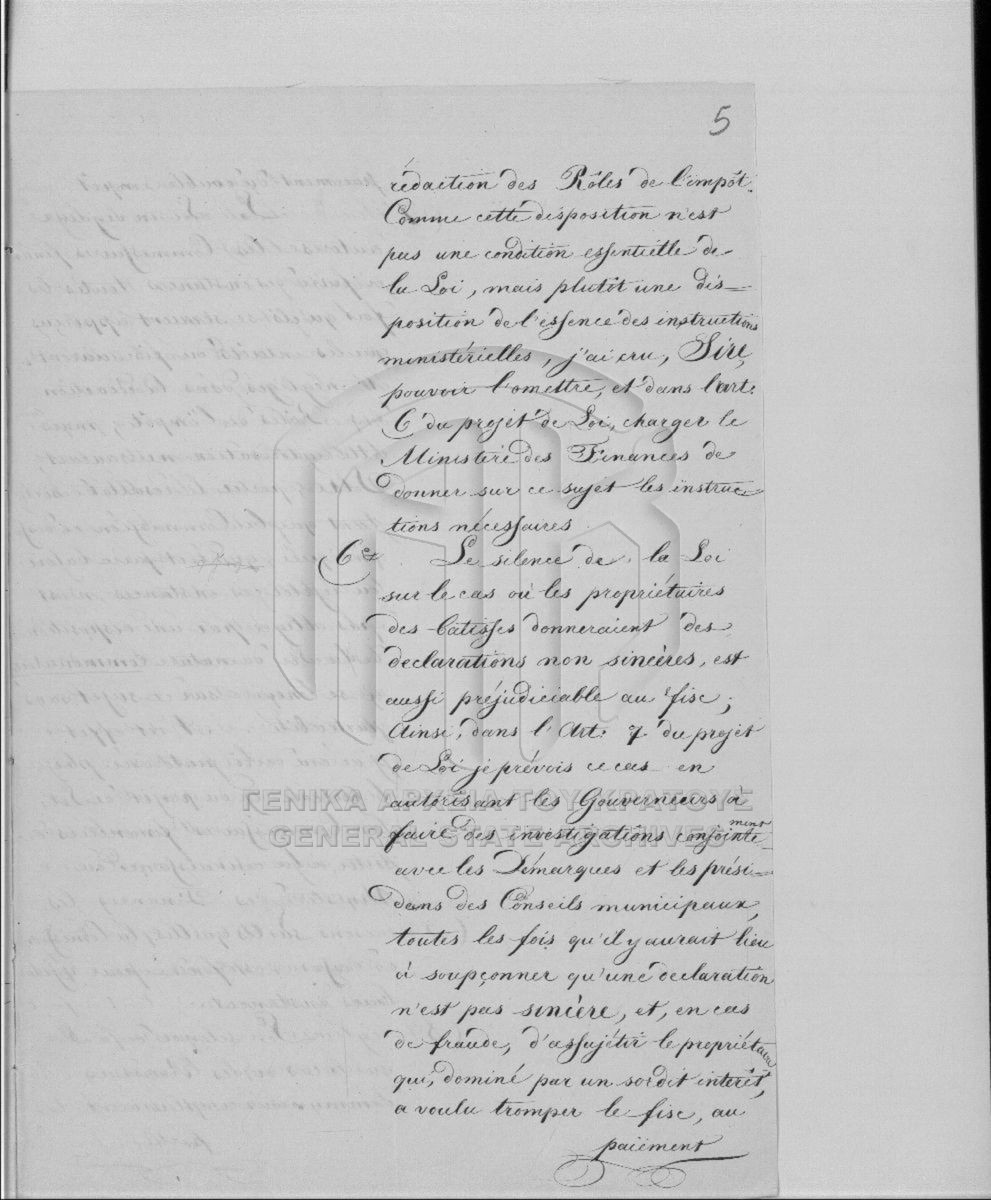 5
rédaction des Rôles de l'impôt.
Comme cette disposition n'est
pas une condition essentielle de
la Loi, mais plutôt une dis-
position de l'essence des instructions
ministérielles, j'ai cru, Sire,
pouvoir l'omettre, et dans l'art.
6 du projet de Loi, charger le
Ministère des Finances de
donner sur ce sujet les instruc-
tions nécessaires.
6° Le silence de la Loi
sur le cas où les propriétaires
des batisses donneraient des
declarations non sincères, est
aussi préjudiciable au fisc;
Ainsi, dans l'Art. 7 du projet
de Loi je prévois ce cas en
autorisant les Gouverneurs à
ΓΕΝΙΚΑ ΑΡΧΕΙΑ ΤΟΥ ΚΡΑΤΟΥΣ
GENERAL STATE ARCHIVES
faire des investigations conjointement
avec les Démarques et les prési-
dens des Conseils municipaux,
toutes les fois qu'il y aurait lieu
à soupçonner qu'une declaration
n'est pas sincère, et, en cas
de fraude, d'assujétir le propriétaire
qui, dominé par un sordit interêt,
a voulu tromper le fisc, au
paiëment